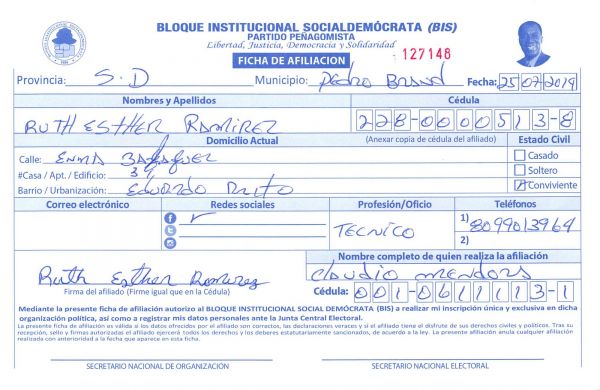 BLOQUE INSTITUCIONAL SOCIALDEMÓCRATA (BIS)
PARTIDO PEÑAGOMISTA
Libertad, Justicia, Democracia y Solidaridad
FICHA DE AFILIACION
127148
Provincia: S.D Municipio: Pedro Brand Fecha: 25/07/2019
Nombres y Apellidos Cédula
RUTH ESTHER RAMIREZ 228-0000513-8
Domicilio Actual (Anexar copia de cédula del afiliado) Estado Civil
Calle: ENMA BALAGUER Casado
#Casa / Apt. / Edificio: Soltero
Barrio / Urbanización: EDUARDO BRITO Conviviente
Correo electrónico Redes sociales Profesión/Oficio Teléfonos
TECNICO 1) 8099013964
2)
Nombre completo de quien realiza la afiliación
Ruth Esther Ramirez Claudio
Firma del afiliado (Firme igual que en la Cédula) Cédula: 001-0611113-1
Mediante la presente ficha de afiliación autorizo al BLOQUE INSTITUCIONAL SOCIAL DEMÓCRATA (BIS) a realizar mi inscripción única y exclusiva en dicha
organización política, así como a registrar mis datos personales ante la Junta Central Electoral.
La presente ficha de afiliación es válida si los datos ofrecidos por el afiliado son correctos, las declaraciones veraces y si el afiliado tiene el disfrute de sus derechos civiles y políticos. Tras su
recepción, sello y firmas autorizadas el afiliado ejercerá todos los derechos y los deberes estatutariamente sancionados, de acuerdo a la ley. La presente afiliación anula cualquier afiliación
realizada con anterioridad a la fecha que aparece en esta ficha.
SECRETARIO NACIONAL DE ORGANIZACIÓN SECRETARIO NACIONAL ELECTORAL